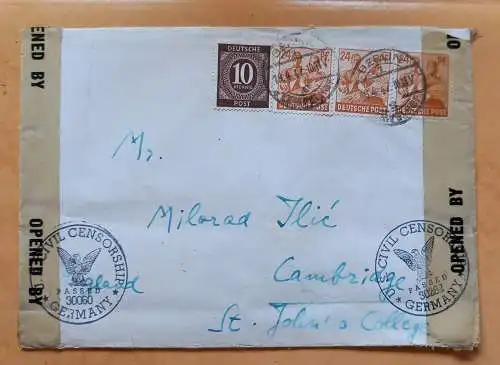 OPENED BY
DEUTSCHE
10
PFENNIG
POST
24
DEUTSCHE POST
24
DEUTSCHE POST
Mr.
Milorad Ilić
Cambridge
St. John's College
OPENED BY
CIVIL CENSORSHIP
PASSED
30060
GERMANY
CIVIL CENSORSHIP
PASSED
GERMANY
OPENED BY